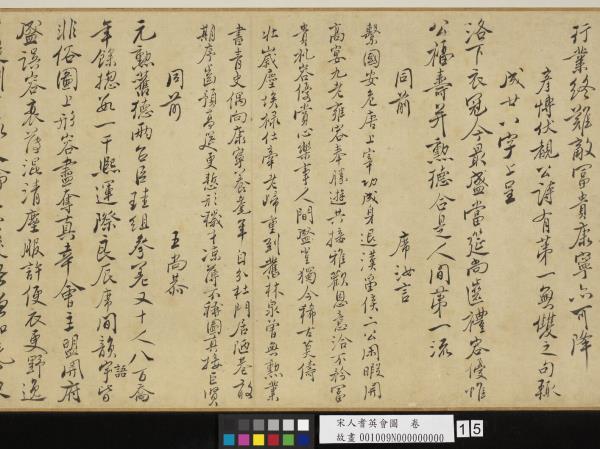 行業終難敵富貴康寧亦可降
彥博伏覩公詩有第一無雙之句輒
成廿八字上呈
洛下衣冠今最盛當筵尚齒禮容優惟
公福壽并勲德合是人間第一流
同前 席汝言
繫國安危唐上宰功成身退漢留侯二公閑暇開
高宴九老雍容奉勝遊共接雅歡恩意洽不矜富
貴禮容優賞心樂事人間盛豈獨今稀古莫儔
壯嵗塵埃祿仕牽老歸重到舊林泉曾無勲業
書青史偶向康寧養老年自分杜門居陋巷敢
期序齒預髙筵更慙形穢才凉薄不稱圖真接巨賢
同前 王尚恭
元勲舊德兩台臣珪組參差又十人八百喬
年餘揔數一千熙運際良辰席間韻語皆
非俗圖上形容盡奪真幸會主盟開府
盛誤容衰薄混清塵服許便衣更野逸
宋人耆英會圖 卷
故畫001009N000000000
15